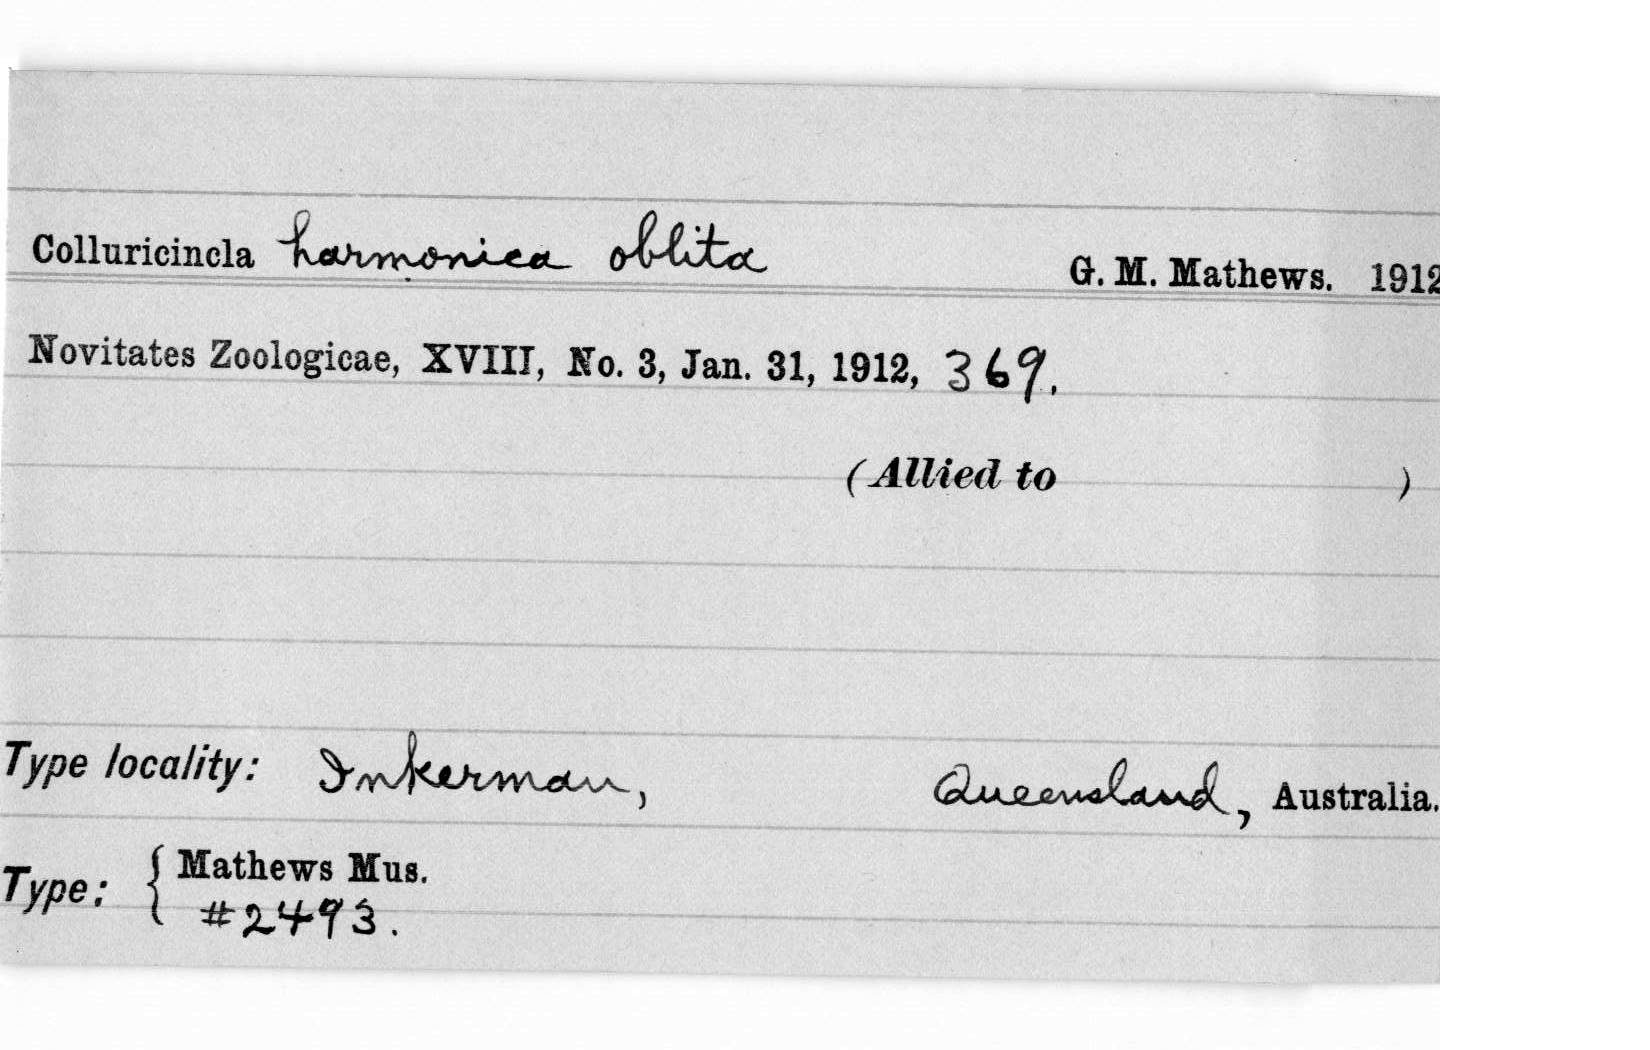 Colluricincla harmonica oblita G. M. Mathews. 1912
Novitates Zoologicae, XVIII, No. 3, Jan. 31, 1912, 369.
(Allied to )
Type locality: Inkerman, Queensland, Australia.
Type: { Mathews Mus.
#2493.